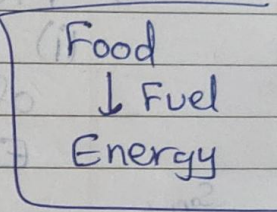 Food
↓ Fuel
Energy